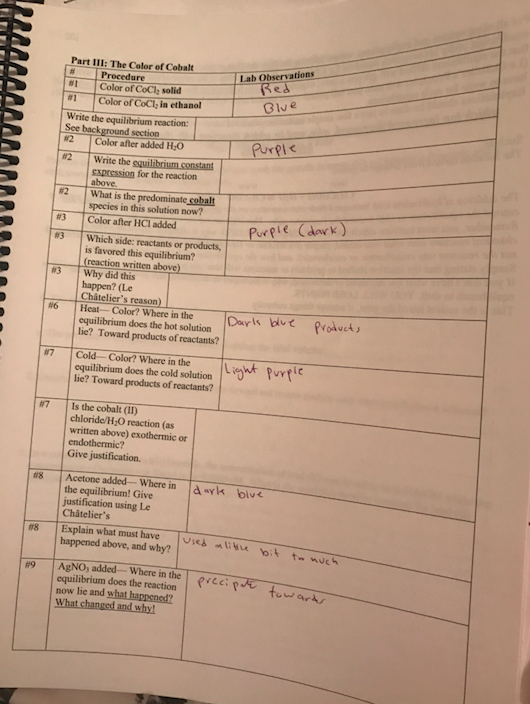 Part III: The Color of Cobalt
# Procedure Lab Observations
#1 Color of CoCl₂ solid Red
#1 Color of CoCl₂ in ethanol Blue
Write the equilibrium reaction:
See background section
#2 Color after added H₂O Purple
#2 Write the equilibrium constant
expression for the reaction
above.
#2 What is the predominate cobalt
species in this solution now?
#3 Color after HCl added Purple (dark)
#3 Which side: reactants or products,
is favored this equilibrium?
(reaction written above)
#3 Why did this
happen? (Le
Châtelier's reason)
#6 Heat— Color? Where in the
equilibrium does the hot solution
lie? Toward products of reactants?
Dark blue products
#7 Cold— Color? Where in the
equilibrium does the cold solution
lie? Toward products of reactants?
Light purple
#7 Is the cobalt (II)
chloride/H₂O reaction (as
written above) exothermic or
endothermic?
Give justification.
#8 Acetone added— Where in
the equilibrium! Give
justification using Le
Châtelier's
dark blue
#8 Explain what must have
happened above, and why?
Used a little bit too much
#9 AgNO₃ added— Where in the
equilibrium does the reaction
now lie and what happened?
What changed and why!
towards